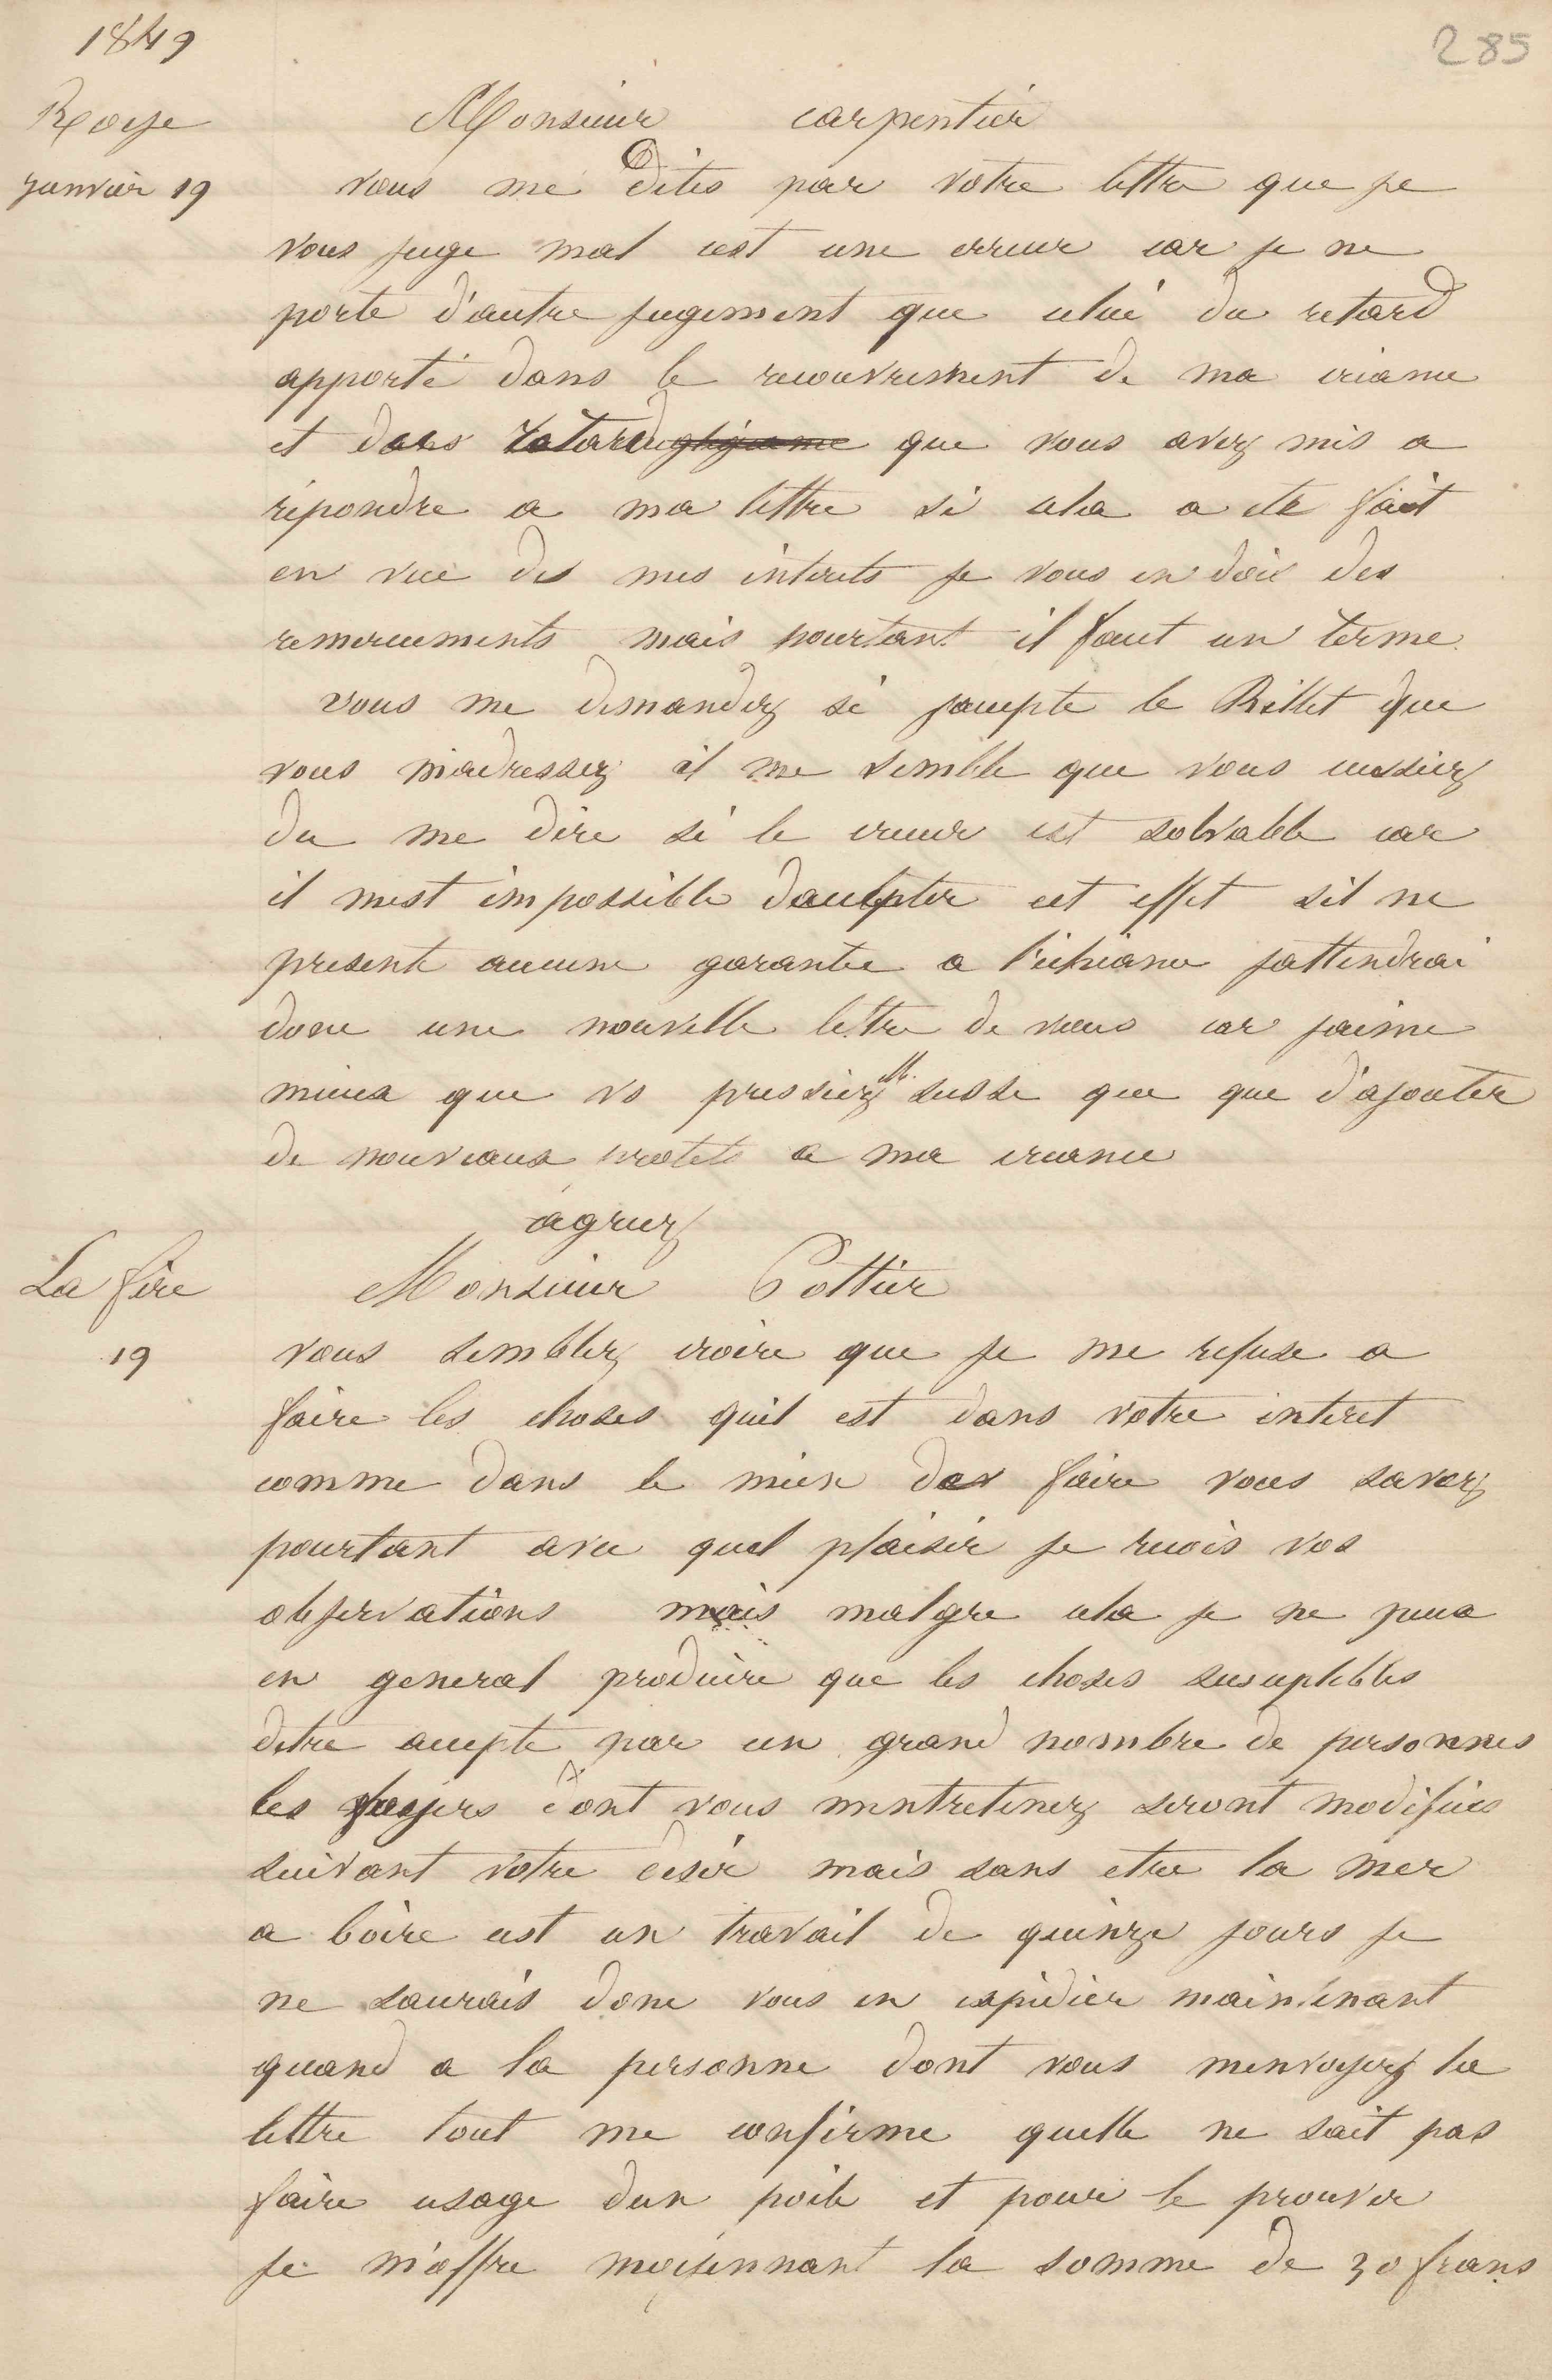 1849
285
Roye
Monsieur carpentier
janvier 19
vous me dites par votre lettre que je
vous juge mal cest une erreur car je ne
porte d'autre jugement que celui du retard
apporté dans le recouvrement de ma créance
et dans retard que vous avez mis a
répondre a ma lettre si cela a été fait
en vue des mes interets je vous en dois des
remerciements mais pourtant il faut un terme
vous me demandez si jaccepte le Billet que
vous m'adressez il me semble que vous eussiez
du me dire si le créeur est solvable car
il mest impossible daccepter cet effet sil ne
presente aucune garantie a l'echeance jattendrai
donc une nouvelle lettre de vous car jaime
mieux que vs pressiez Mr susse que que d'ajouter
de nouveaux protets a ma creance
agreez
La fère
Monsieur Pottier
19
vous semblez croire que je me refuse a
faire les choses quil est dans votre interet
comme dans le mien de faire vous savez
pourtant avec quel plaisir je recois vos
observations mais malgre cela je ne peux
en general produire que les choses suceptibles
detre accepte par un grand nombre de personnes
les foyers dont vous mentretenez seront modifiées
suivant votre desir mais sans etre la mer
a boire cest un travail de quinze jours je
ne saurais donc vous en expidier maintenant
quand a la personne dont vous menvoyez la
lettre tout me confirme quelle ne sait pas
faire usage dun poile et pour le prouver
je m'offre moyennant la somme de 30 frans